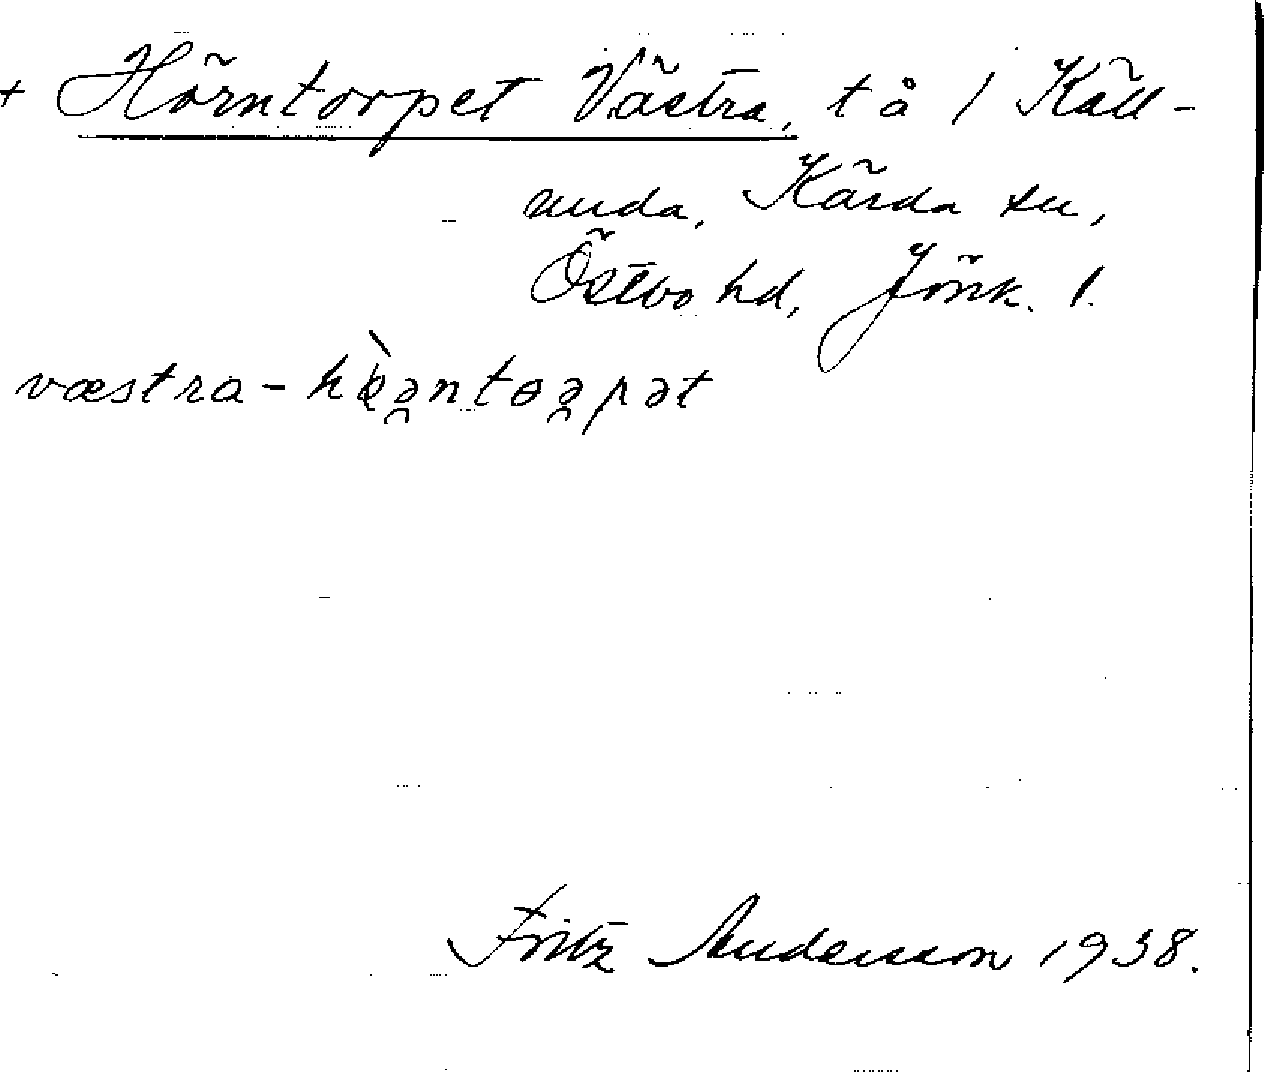 + Hörntorpet Västra, t å / Käll-
unda, Kärda sn,
Östbo hd, Jönk. l.
væstra-hœ̀ə̯ntoə̯pət
Fritz Andersson 1938.